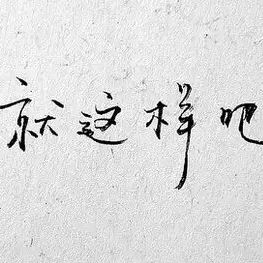 就这样吧